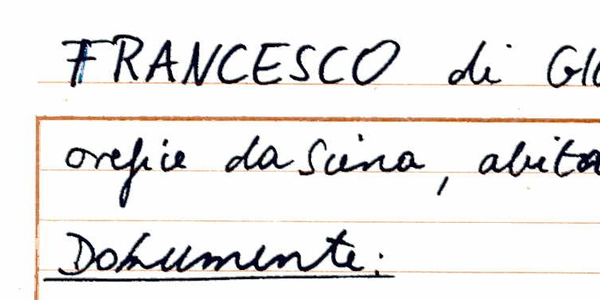 FRANCESCO di GIO
orefice da Siena, abita
Dokumente: